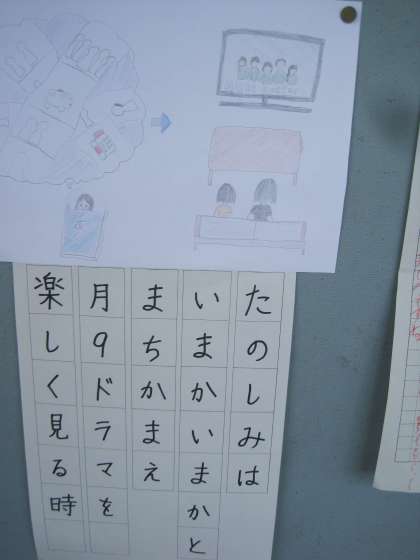 たのしみは
いまかいまかと
まちかまえ
月9ドラマを
楽しく見る時